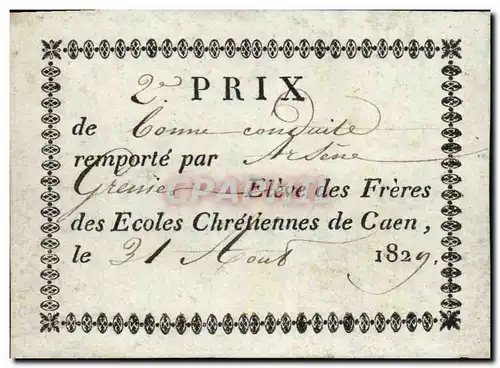 2e. PRIX
de bonne conduite
remporté par Arsène
Grenier Elève des Frères
des Ecoles Chrétiennes de Caen,
le 31 Aout 1829.